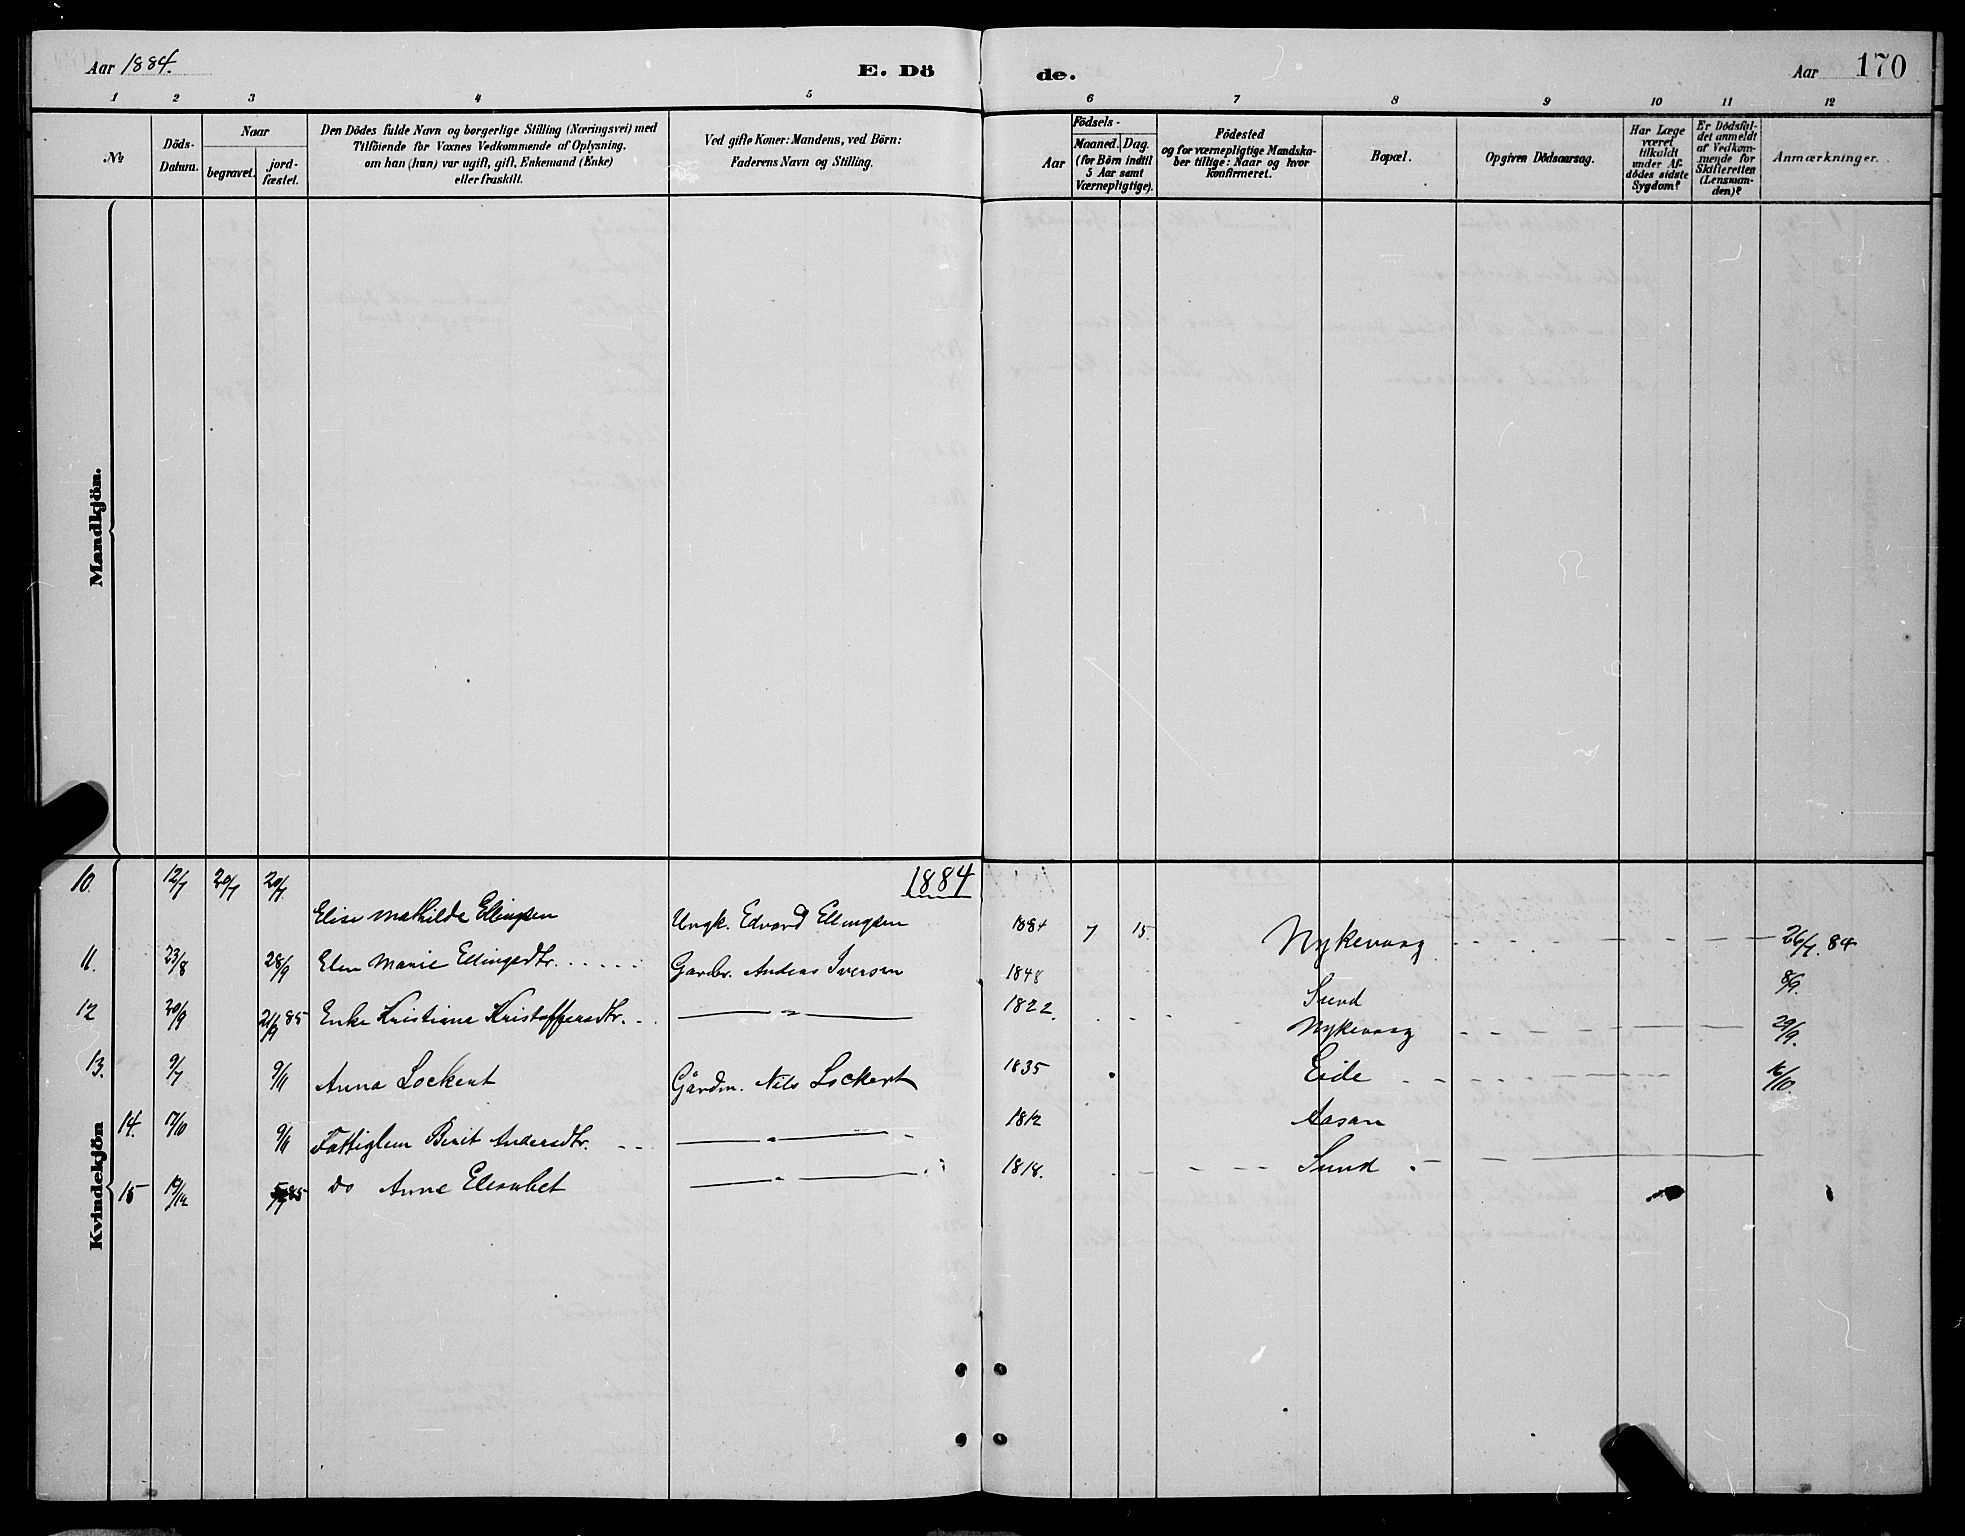 Aar 1884. E. Dö de. Aar 170
1 2 3 4 5 6 7 8 9 10 11 12
No
Döds-Datum.
Naar
begravet.
jord-fæstet.
Den Dödes fulde Navn og borgerlige Stilling (Næringsvei) med
Tilföiende for Voxnes Vedkommende af Oplysning,
om han (hun) var ugift, gift, Enkemand (Enke)
eller fraskilt.
Ved gifte Koner: Mandens, ved Börn:
Faderens Navn og Stilling.
Födsels-
Aar
Maaned. Dag.
(for Börn indtil
5 Aar samt
Værnepligtige).
Födested
og for værnepligtige Mandska-
ber tillige: Naar og hvor
Konfirmeret.
Bopæl.
Opgiven Dödsaarsag.
Har Læge
været
tilkaldt
under Af-
dödes sidste
Sygdom?
Er Dödsfal-
det anmeldt
af Vedkom-
mende for
Skifteretten
(Lensman-
den)?
Anmærkninger.
Mandkjön.
Kvindekjön
1884
10. 12/7 20/7 20/7. Elise Mathilde Ellingsen Ungk. Edvard Ellingsen 1884 7 15. Nykevaag 26/7. 84
11. 23/8 28/9 Elen Marie Ellingsdtr. Gaardbr. Andeas Iversen 1848 Sund 8/9.
12 20/9 21/9 85 Enke Kristiane Kristoffersdtr. — " — 1822. Nykevaag 29/9.
13. 9/7 9/11 Anna Lockert Gårdm. Nils Lockert 1835 Eide 16/10.
14. 17/10 9/11 Fattiglem Berit Andersdtr. — " — 1812 Aasan
15 19/12 85 do Anne Elisabet — " — 1818. Sund